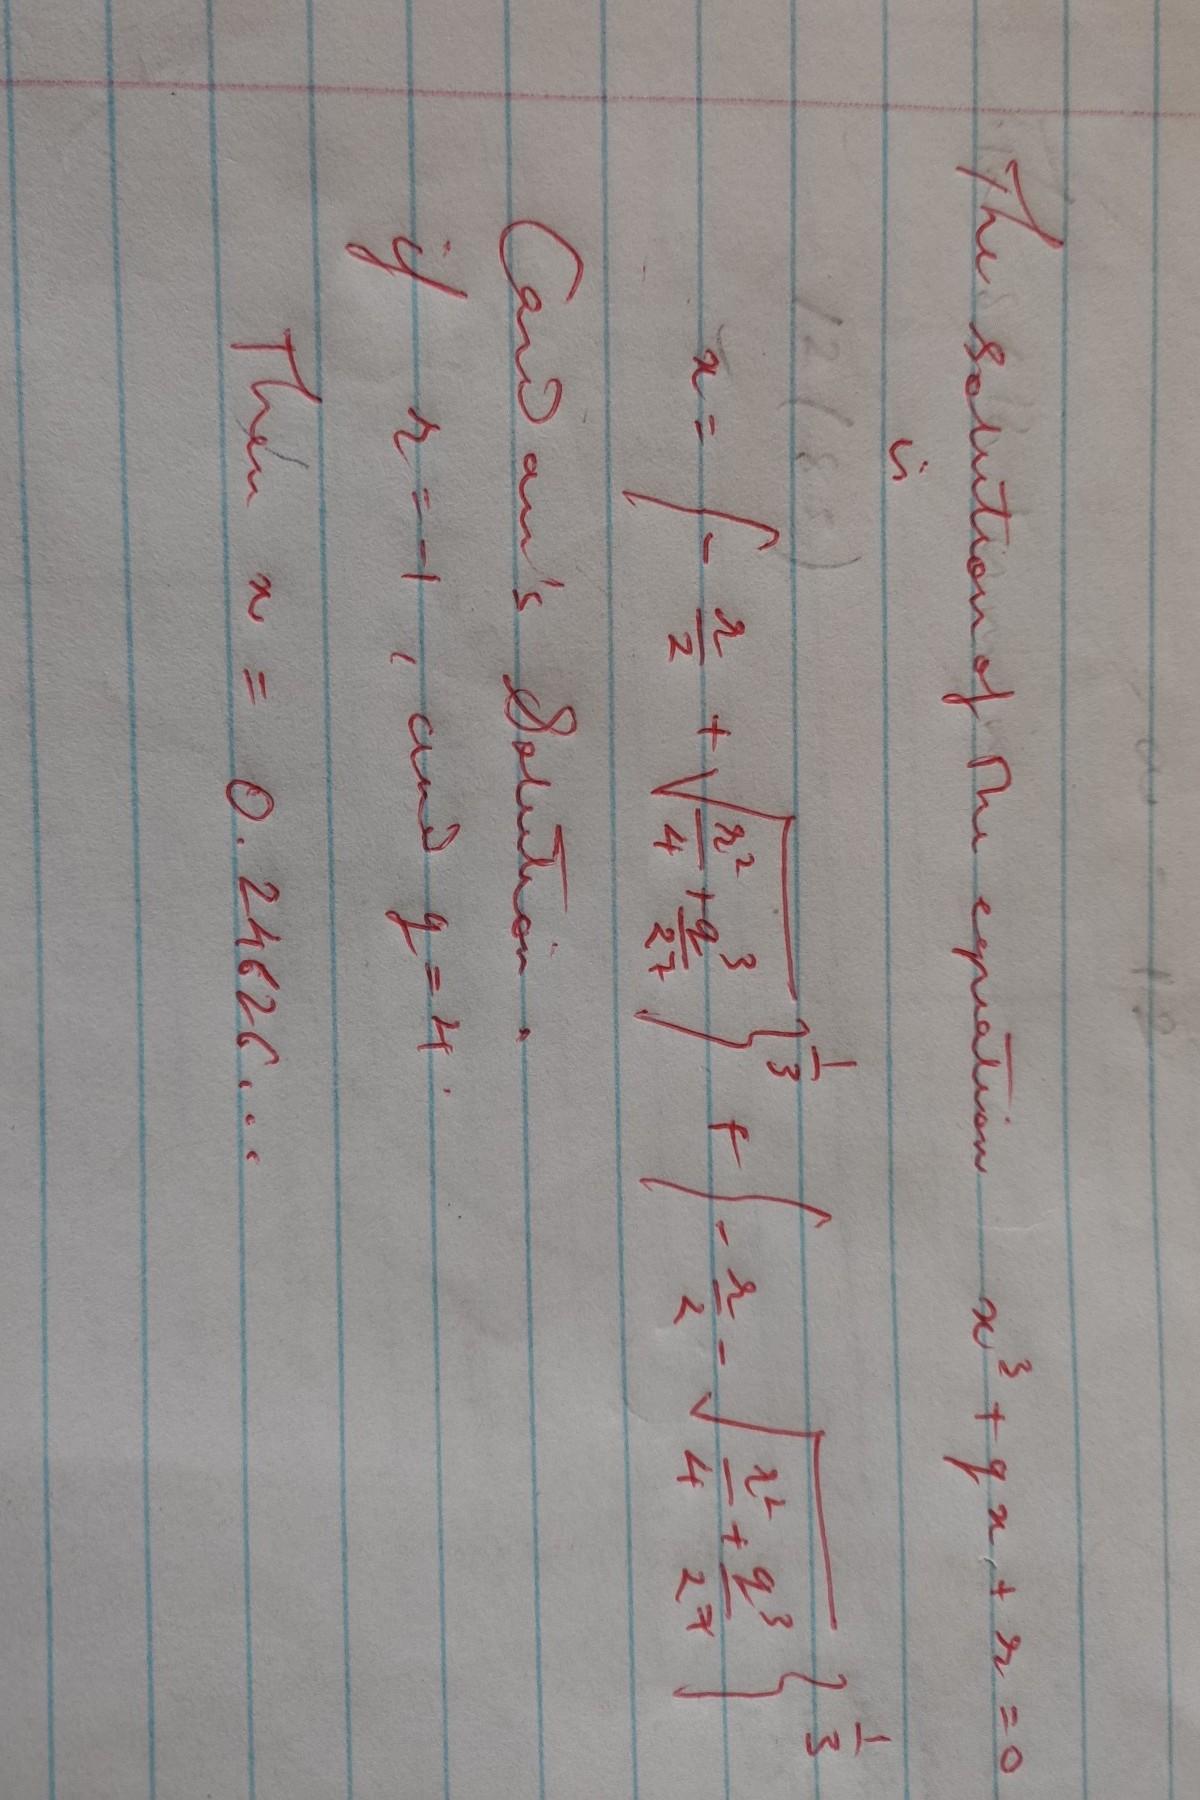 The solution of the equation x³ + qx + r = 0
is
x = {-r/2 + √(r²/4 + q³/27)}^(1/3) + {-r/2 - √(r²/4 + q³/27)}^(1/3)
Cardan's Solution.
if r = -1, and q = 4.
Then x = 0.24626...